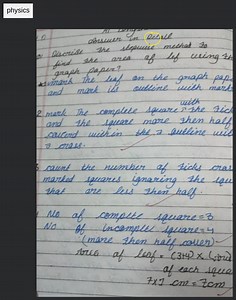 physics
Answer in Detail
Describe the stepwise method to
find the area of lef using the
graph paper?
mark the leaf on the graph pap
and mark its outline with marks
with
mark the complete square the tick
and the square more then half
within the outline
a cross.
count the number of ticks cross
marked squares ignoring the squ
that are less then half.
No of complete square=3
NO of incomplete square=4
(more then half cover)
Area of leaf = (3+4) ×
of each squa
7x1 cm = 7cm